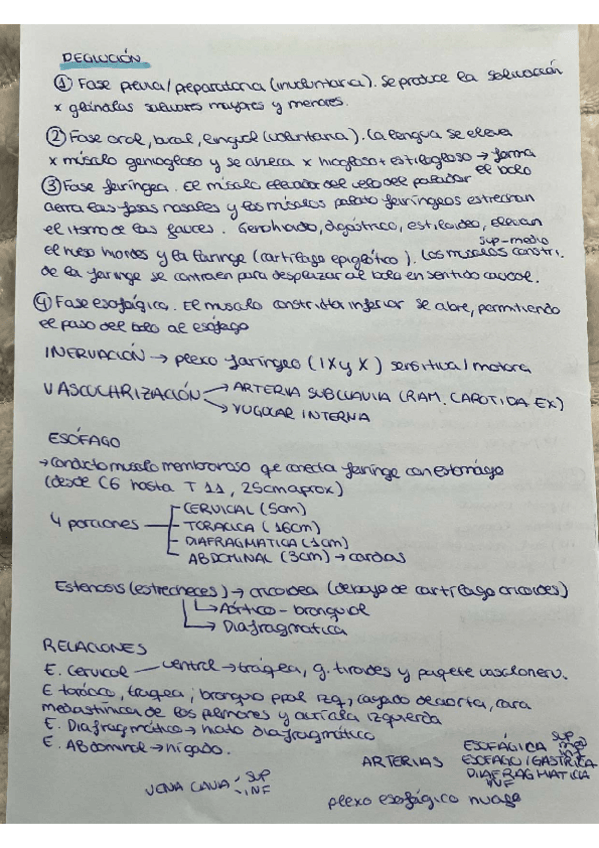 DEGLUCIÓN
① Fase previa/preparatoria (involuntaria). Se produce la salivación
x glándulas salivares mayores y menores.
② Fase oral, bucal, lingual (voluntaria). La lengua se eleva
x músculo geniogloso y se ahueca x hiogloso + estilogloso → forma
el bolo
③ Fase faríngea. El músculo elevador del velo del paladar
cierra las fosas nasales y los músculos palato faríngeos estrechan
el itsmo de las fauces. Genohioideo, digástrico, estiloideo, elevan
el hueso hioides y la laringe (cartílago epiglótico). Los musculos constri.
sup-medio
de la faringe se contraen para desplazar al bolo en sentido caudal.
④ Fase esofágica. El musculo constrictor inferior se abre, permitiendo
el paso del bolo al esófago
INERVACIÓN → plexo faríngeo (IX y X) sensitiva/motora
VASCULARIZACIÓN → ARTERIA SUBCLAVIA (RAM. CAROTIDA EX)
→ YUGULAR INTERNA
ESÓFAGO
→ conducto musculo membranoso que conecta faringe con estómago
(desde C6 hasta T11, 25cm aprox)
4 porciones
CERVICAL (5cm)
TORACICA (16cm)
DIAFRAGMATICA (1cm)
ABDOMINAL (3cm) → cardias
Estenosis (estrecheces) → cricoidea (debajo de cartílago cricoides)
→ Aórtico-bronquial
→ Diafragmatica
RELACIONES
E. Cervical — ventral → tráquea, g. tiroides y paquete vasculonerv.
E torácico, traquea, bronquio ppal izq, cayado de aorta, cara
mediastínica de los pulmones y aurícula izquierda
E. Diafragmático → hiato diafragmático
E. Abdominal → hígado.
ARTERIAS
ESOFÁGICA sup med inf
ESOFAGO/GASTRICA
DIAFRAGMATICA INF
VENA CAVA SUP
INF
plexo esofágico